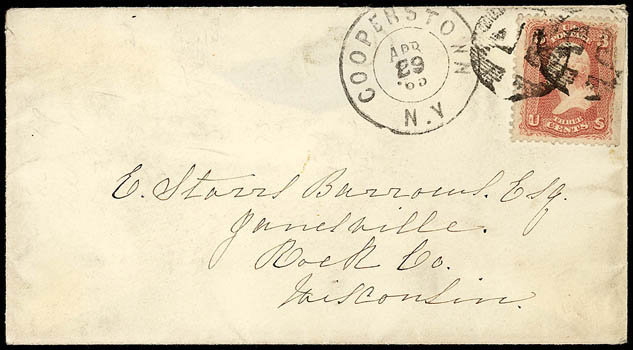 COOPERSTOWN
APR
29
'65
N.Y
U THREE S
CENTS
E. Storrs Barrows. Esq.
Janesville.
Rock Co.
Wisconsin.